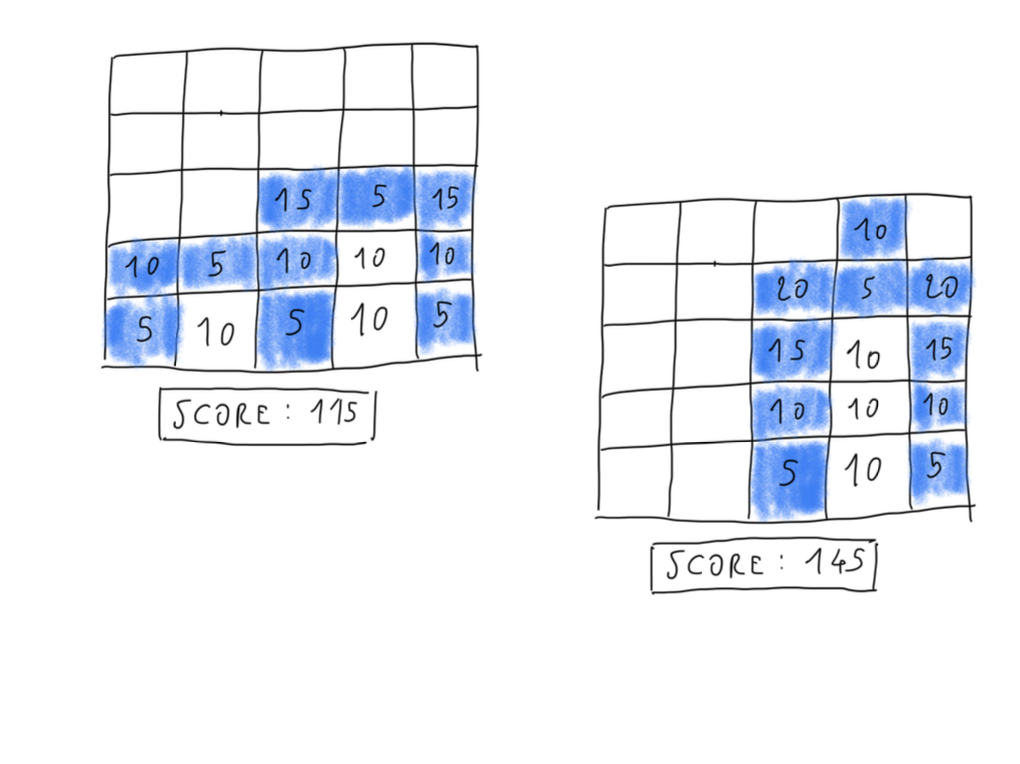 15 5 15
10 5 10 10 10
5 10 5 10 5
SCORE: 115
10
20 5 20
15 10 15
10 10 10
5 10 5
SCORE: 145